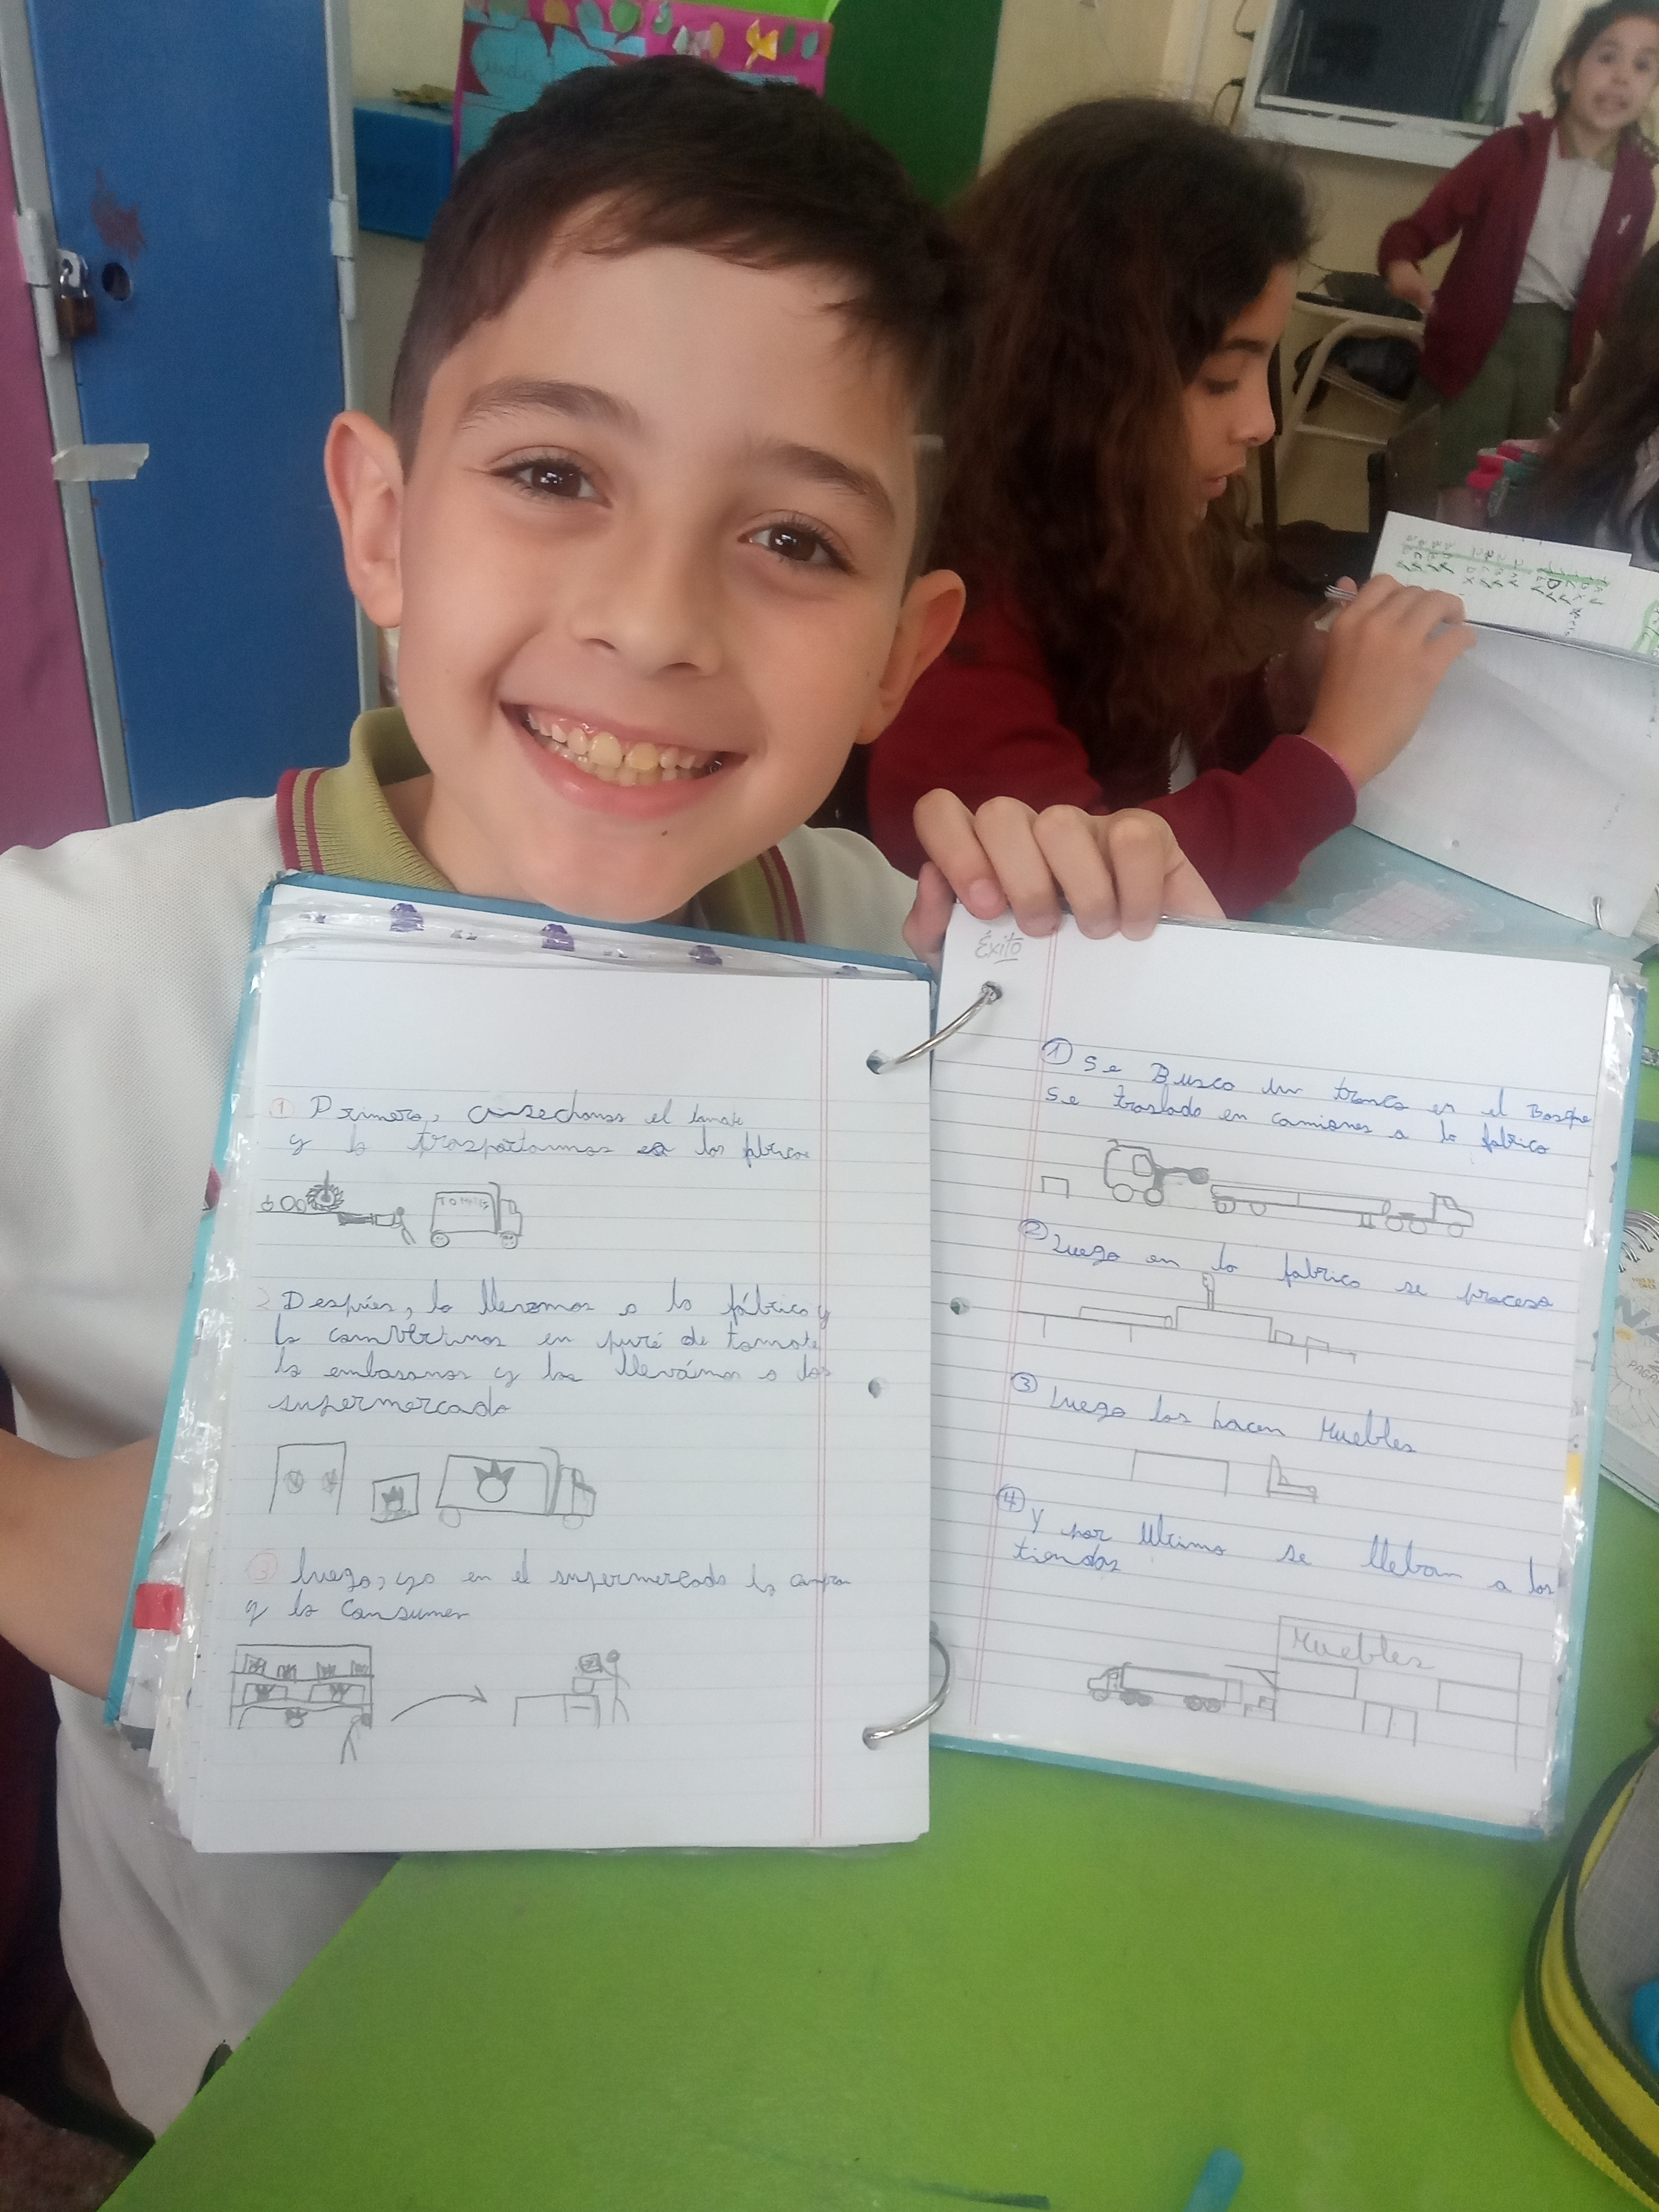 1 Primero, cosechamos el tomate
y lo trasportamos a las fabricas
TOMATES
2 Después, lo llevamos a la fábrica y
lo convertimos en puré de tomate
lo embasamos y los llevámos a los
supermercado
3 luego, ya en el supermercado lo compran
y lo consumen
Éxito
1 Se Busca un tronco en el Bosque
Se traslada en camiones a la fabrica
2 Luego en la fabrica se procesa
3 Luego los hacen Muebles
4 y por ultimo se lleban a las
tiendas
Muebles